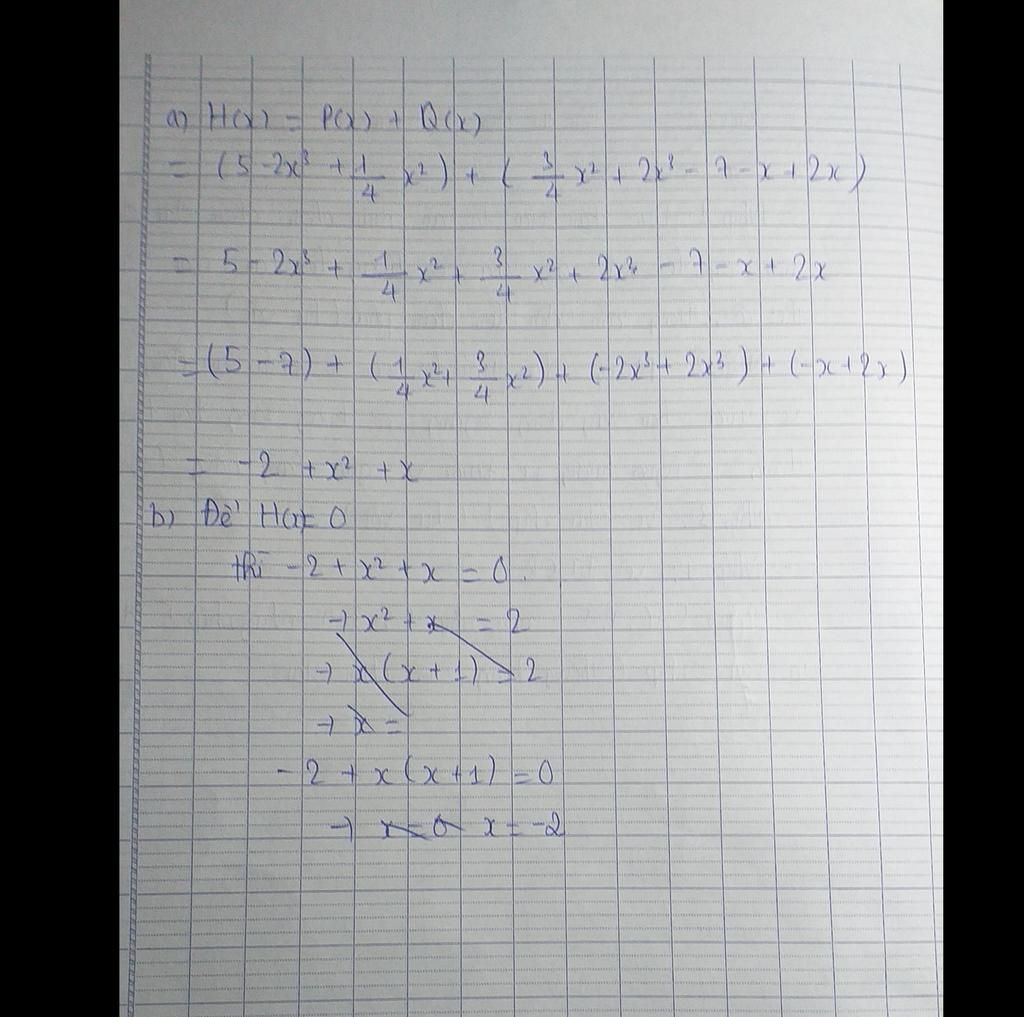 a) H(x) = P(x) + Q(x)
= (5 - 2x³ + 1/4 x²) + ( 3/4 x² + 2x³ - 7 - x + 2x )
= 5 - 2x³ + 1/4 x² + 3/4 x² + 2x³ - 7 - x + 2x
= (5 - 7) + (1/4 x² + 3/4 x²) + (-2x³ + 2x³) + (-x + 2x)
= -2 + x² + x
b) Để H(x) = 0
thì -2 + x² + x = 0.
→ x² + x = 2
→ x (x + 1) = 2
→ x =
-2 + x (x + 1) = 0
→ x = 0 x = -2